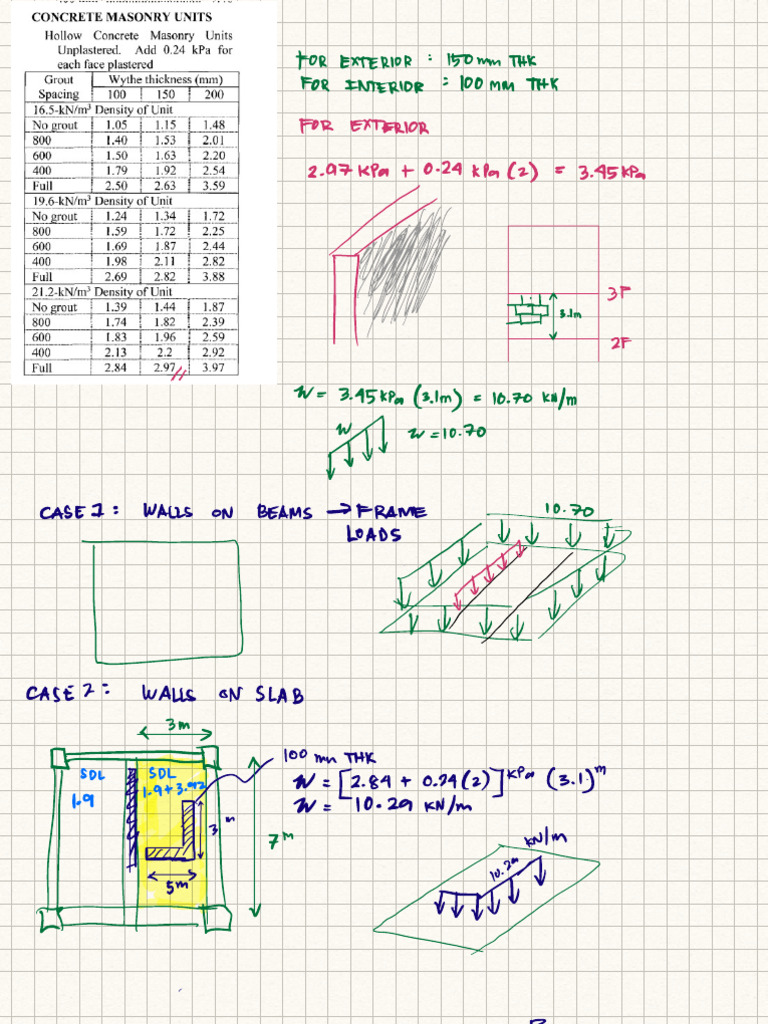 CONCRETE MASONRY UNITS
Hollow Concrete Masonry Units
Unplastered. Add 0.24 kPa for
each face plastered
Grout Wythe thickness (mm)
Spacing 100 150 200
16.5-kN/m³ Density of Unit
No grout 1.05 1.15 1.48
800 1.40 1.53 2.01
600 1.50 1.63 2.20
400 1.79 1.92 2.54
Full 2.50 2.63 3.59
19.6-kN/m³ Density of Unit
No grout 1.24 1.34 1.72
800 1.59 1.72 2.25
600 1.69 1.87 2.44
400 1.98 2.11 2.82
Full 2.69 2.82 3.88
21.2-kN/m³ Density of Unit
No grout 1.39 1.44 1.87
800 1.74 1.82 2.39
600 1.83 1.96 2.59
400 2.13 2.2 2.92
Full 2.84 2.97 3.97
FOR EXTERIOR : 150 mm THK
FOR INTERIOR : 100 mm THK
FOR EXTERIOR
2.97 KPa + 0.24 kPa (2) = 3.45 kPa
3F
3.1m
2F
W = 3.45 kPa (3.1m) = 10.70 KN/m
W
W = 10.70
CASE 1: WALLS ON BEAMS → FRAME
LOADS
10.70
CASE 2: WALLS ON SLAB
3m
SDL
1.9
SDL
1.9+3.92
3 m
5m
7m
100 mm THK
W = [2.84 + 0.24(2)] kPa (3.1) m
W = 10.29 KN/m
KN/m
10.29